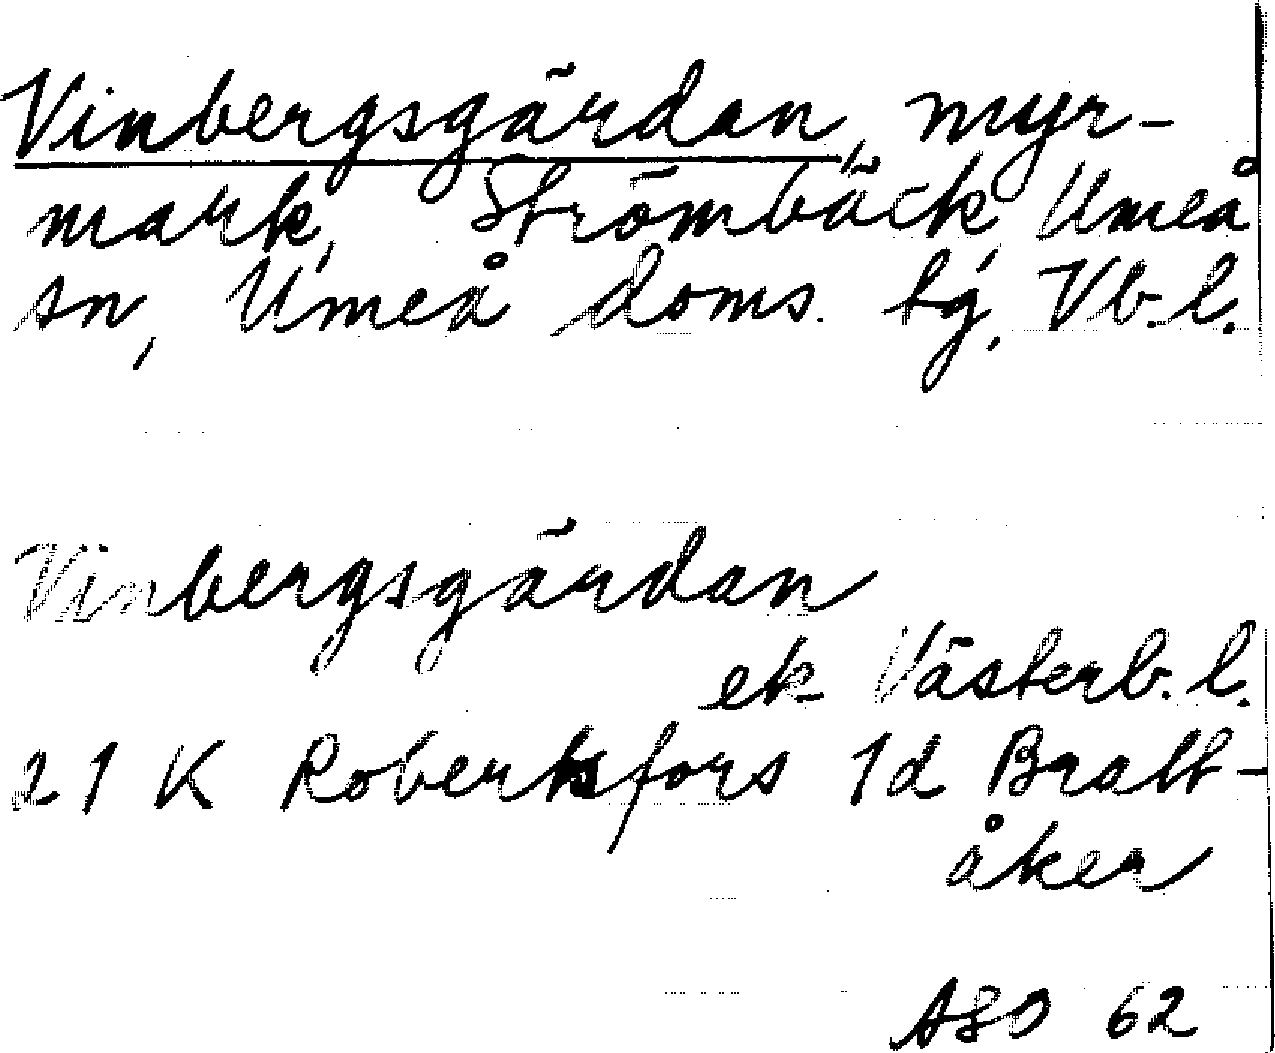 Vinbergsgärdan, myr-
mark, Strömbäck, Umeå
sn, Umeå doms. tg, Vb. l.
Vinbergsgärdan
ek Västerb. l.
21 K Robertsfors 1d Bratt-
åker
ASO 62